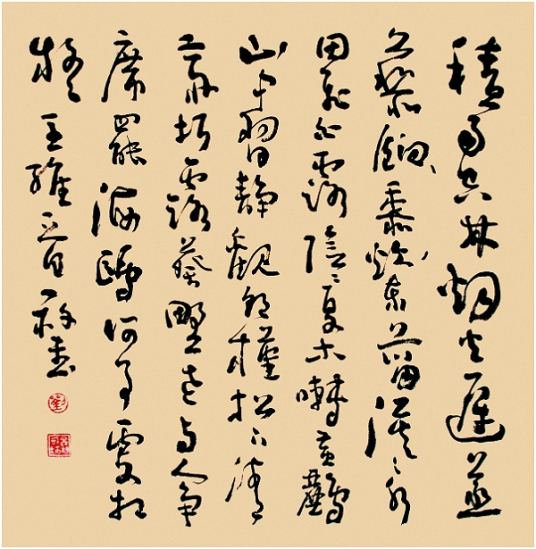 積雨空林烟火遲蒸
藜餉黍炊東菑漠〻水
田飛白露陰〻夏木囀黃鸝
山中習靜觀朝槿松下清
齋折露葵野老與人爭
席罷海鷗何事更相
疑 王維